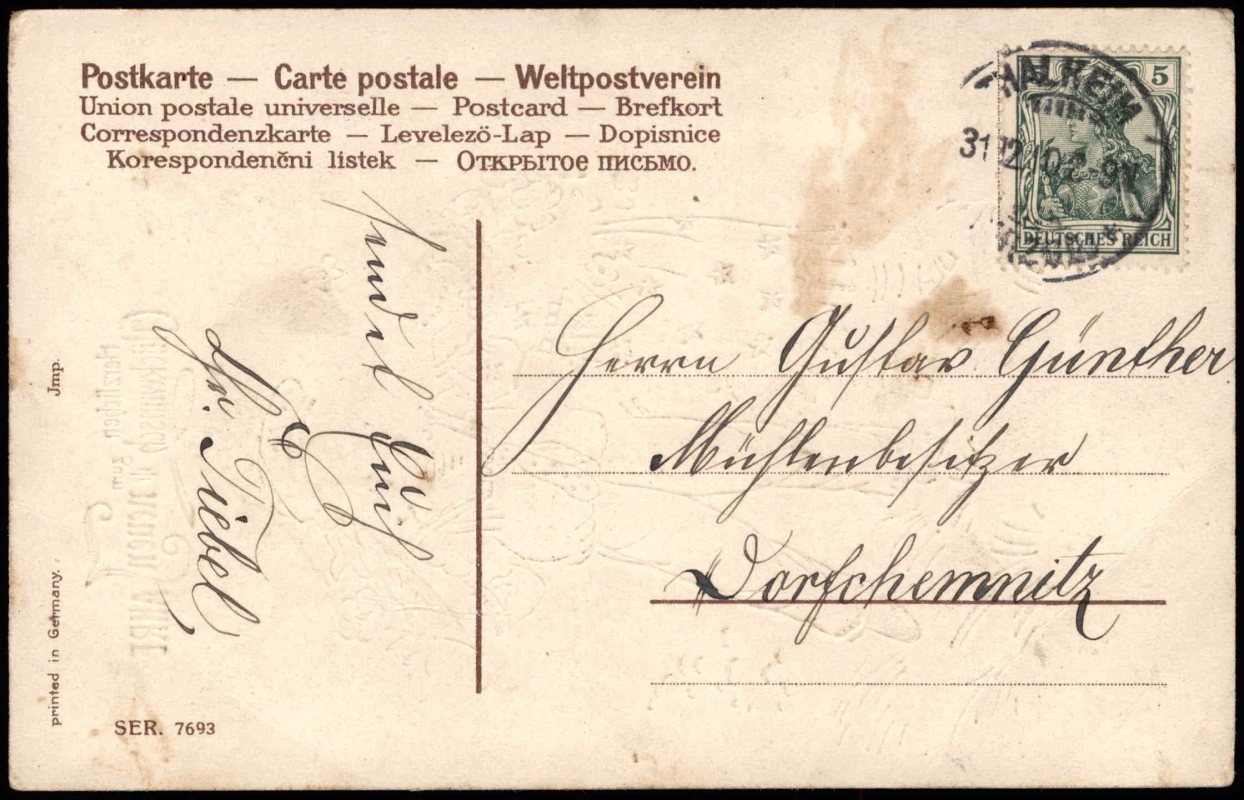 Postkarte — Carte postale — Weltpostverein
Union postale universelle — Postcard — Brefkort
Correspondenzkarte — Levelező-Lap — Dopisnice
Korespondenčni listek — Открытое письмо.
THALHEIM
31.12.10
5
DEUTSCHES REICH
sendet Euch
Tiebel
Herrn Gustav Günther
Mühlenbesitzer
Dorfchemnitz
Jmp.
printed in Germany.
SER. 7693
Herzlichen
Glückwunsch
zum
neuen JAHRE